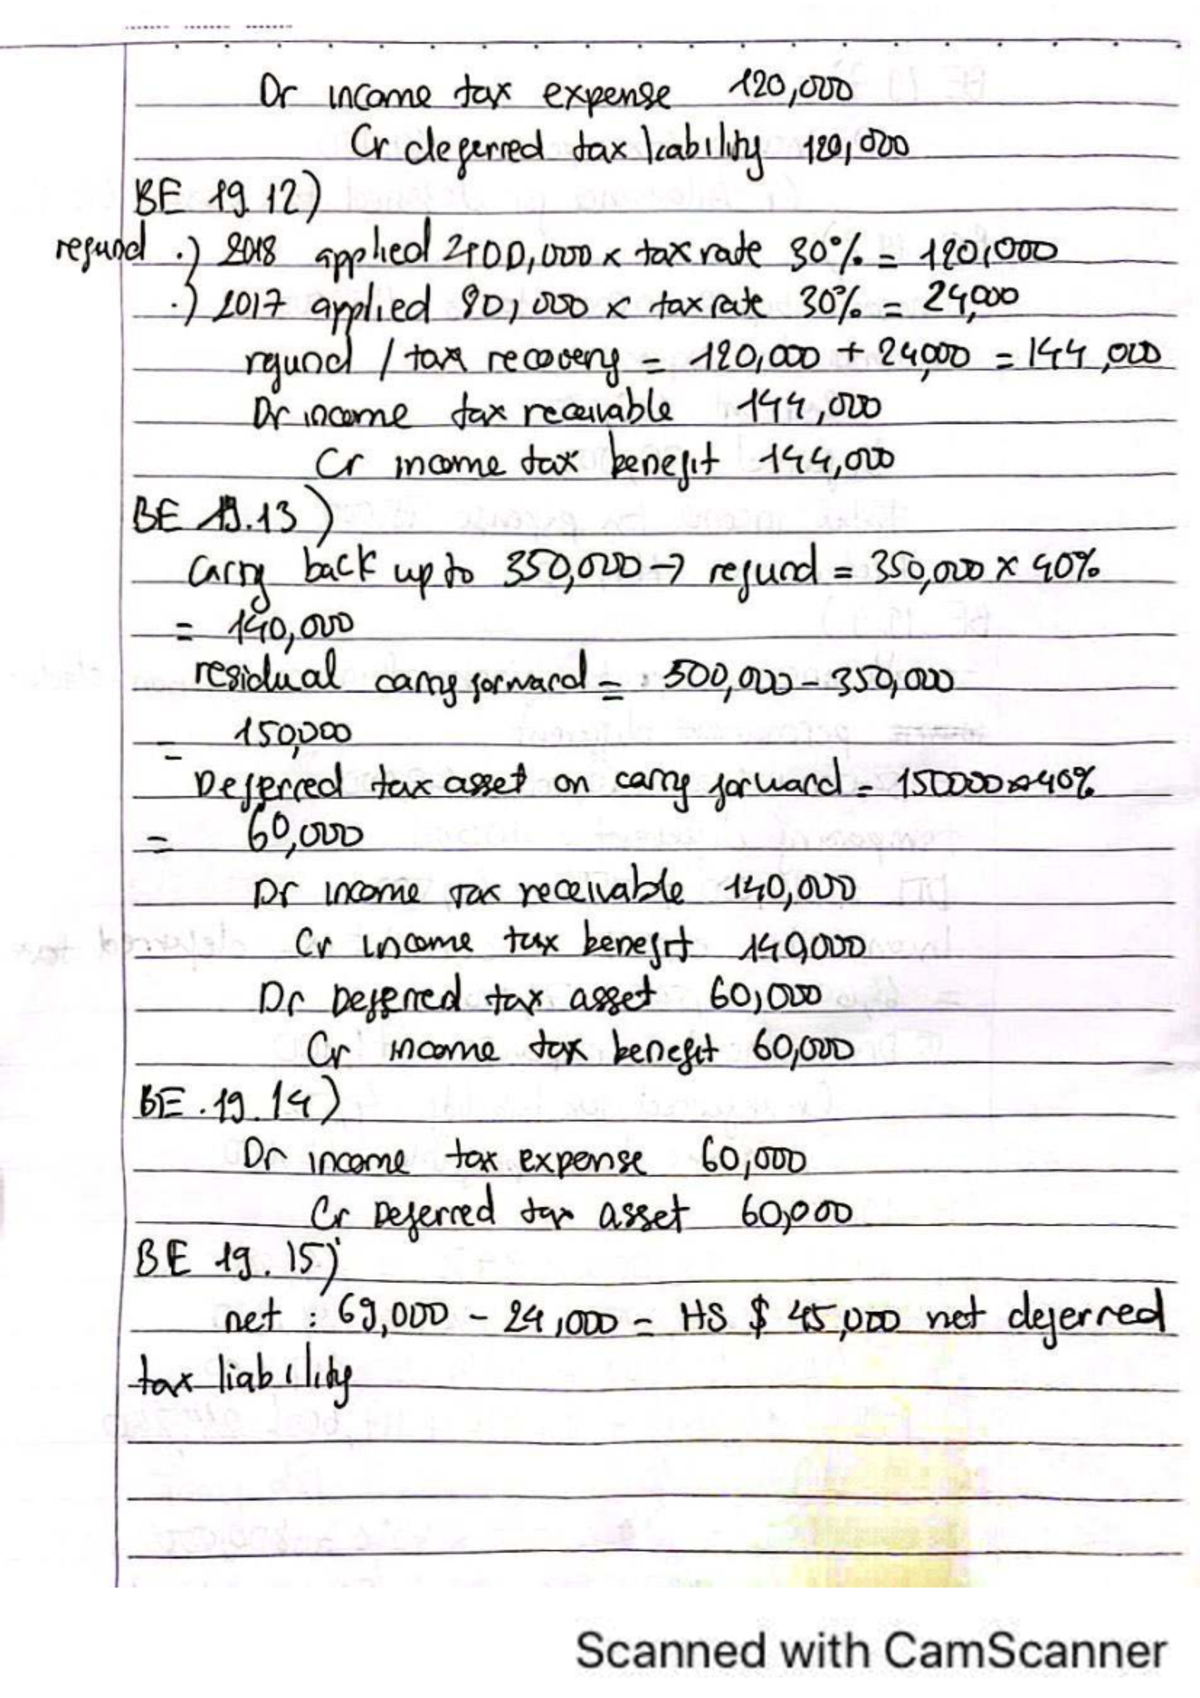 Dr income tax expense 120,000
Cr deferred tax liability 120,000
BE 19.12)
refund .) 2018 applied 400,000 x tax rate 30% = 120,000
.) 2017 applied 80,000 x tax rate 30% = 24,000
refund / tax recovery = 120,000 + 24,000 = 144,000
Dr income tax receivable 144,000
Cr income tax benefit 144,000
BE 19.13)
Carry back up to 350,000 → refund = 350,000 x 40%
= 140,000
residual carry forward = 500,000 - 350,000
= 150,000
Deferred tax asset on carry forward = 150000 x 40%
= 60,000
Dr income tax receivable 140,000
Cr income tax benefit 140,000
Dr Deferred tax asset 60,000
Cr income tax benefit 60,000
BE .19.14)
Dr income tax expense 60,000
Cr Deferred tax asset 60,000
BE 19.15)
net : 69,000 - 24,000 = $ 45,000 net deferred
tax liability
Scanned with CamScanner